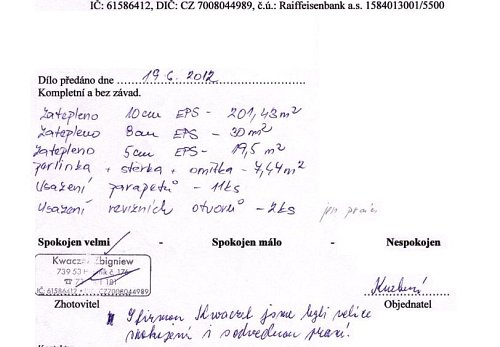 IČ: 61586412, DIČ: CZ 7008044989, č.ú.: Raiffeisenbank a.s. 1584013001/5500
Dílo předáno dne 19 6. 2012
Kompletní a bez závad.
Zatepleno 10cm EPS - 201,43m²
Zatepleno 8cm EPS - 30m²
Zatepleno 5cm EPS - 19,5m²
perlinka + stěrka + omítka - 7,44m²
Usazení parapetů - 11ks
Usazení revizních otvorů - 2ks
Spokojen velmi - Spokojen málo - Nespokojen
Kwaczek Zbigniew
739 53 176
IČ: 61586412 DIČ: CZ7008044989
Zhotovitel Objednatel
S firmou Kwaczek jsme byli velice
spokojeni i s odvedenou prací!